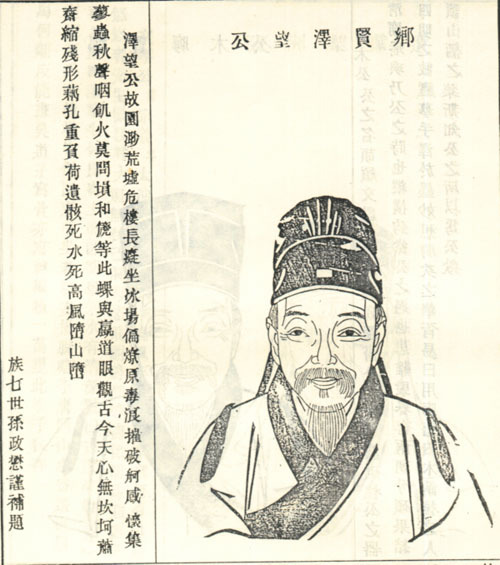 鄉賢澤望公
澤望公故園渺荒墟危樓長坐冰場偪燎原毒浪摧破舸感懷集
蓼蟲秋聲咽飢火莫問塤和篪等此蜾與蠃道眼觀古今天心無坎坷蕭
齋縮殘形藕孔重負荷遺骸死水死高風墮山墮
族七世孫政懋謹補題